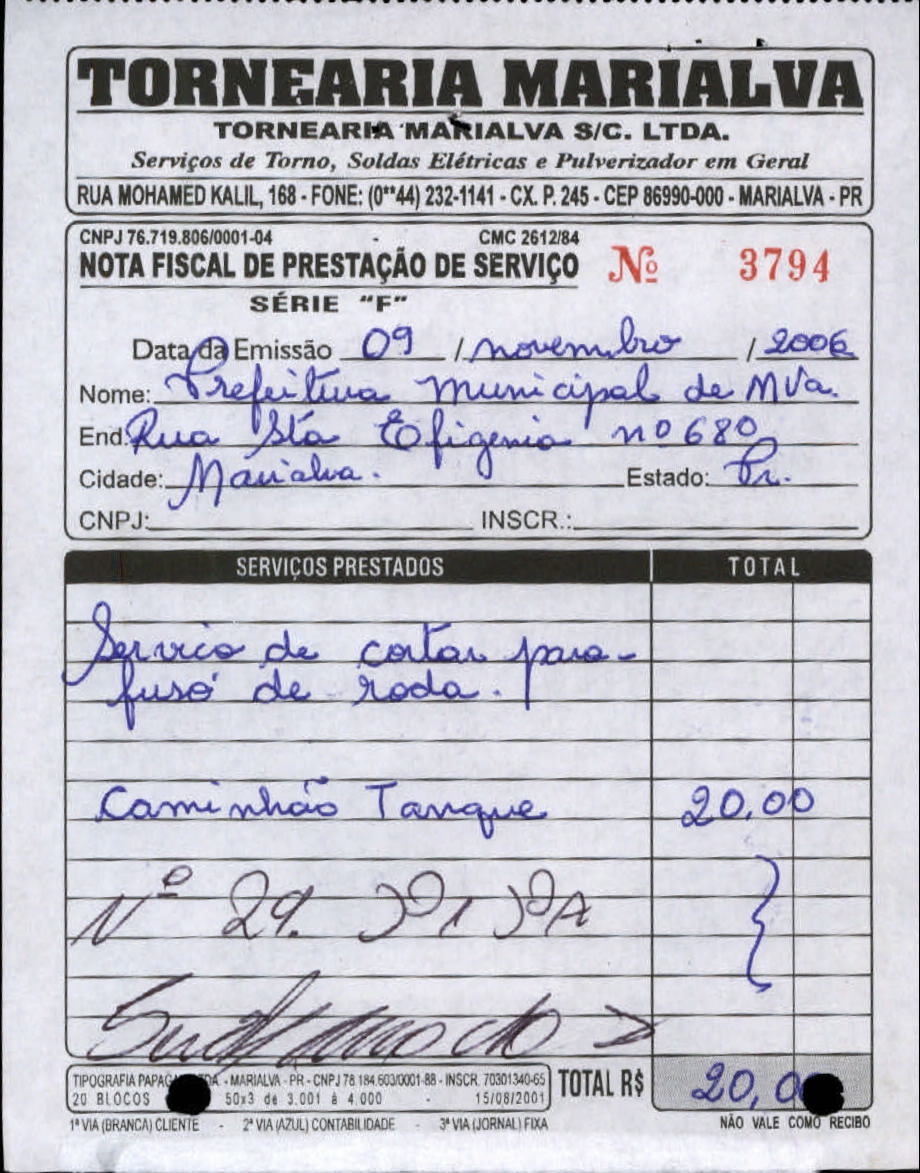 TORNEARIA MARIALVA
TORNEARIA MARIALVA S/C. LTDA.
Serviços de Torno, Soldas Elétricas e Pulverizador em Geral
RUA MOHAMED KALIL, 168 - FONE: (0**44) 232-1141 - CX. P. 245 - CEP 86990-000 - MARIALVA - PR
CNPJ 76.719.806/0001-04 CMC 2612/84
NOTA FISCAL DE PRESTAÇÃO DE SERVIÇO Nº 3794
SÉRIE "F"
Data da Emissão 09 / novembro / 2006
Nome: Prefeitura Municipal de MVa.
End. Rua Sta Efigenia nº 680
Cidade: Marialva. Estado: Pr.
CNPJ: INSCR.:
SERVIÇOS PRESTADOS TOTAL
Servico de cortar para-
fuso de roda.
Caminhão Tanque 20,00
Nº 29.
TIPOGRAFIA - MARIALVA - PR - CNPJ 78.184.603/0001-88 - INSCR. 70301340-65 TOTAL R$ 20,
20 BLOCOS 50x3 de 3.001 à 4.000 - 15/08/2001
1ª VIA (BRANCA) CLIENTE - 2ª VIA (AZUL) CONTABILIDADE - 3ª VIA (JORNAL) FIXA NÃO VALE COMO RECIBO